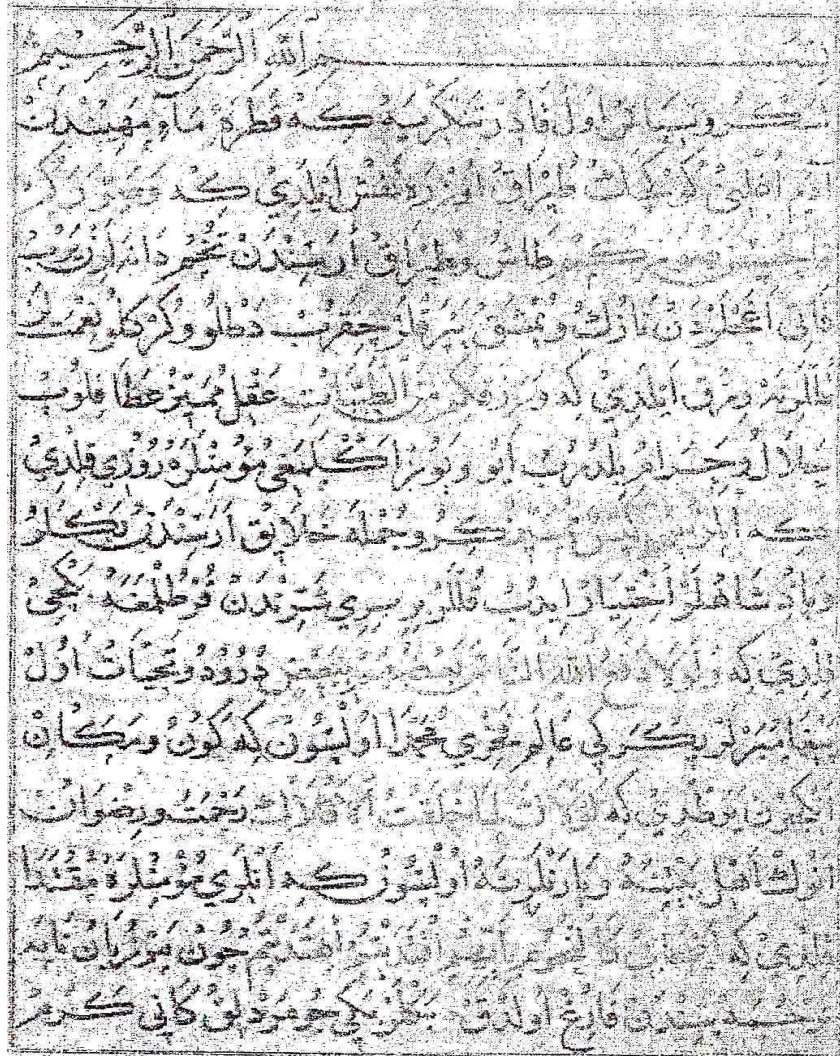 بسم الله الرحمن الرحيم
شكر و سپاس اول قادر تنكريه كه قطره ماء مهيندن
آدم طپراق اوزره نقش ايلدى كه وصوركم
طاش وطپراق ارسندن تخم و دانه
قاتى اغجلردن نازك و يمشق يپرقلر چقرب دطلو و كركلو نعمتلر
قللرينه رزق ايلدى كه ورزقكم من الطيبات عقل مميز عطا قلوب
حلال وحرام بلدرب ايو ويوز اكلمغى مؤمنلره روزى قلدى
كه وجمله خلايق ارسندن بكلر
وپادشاهلر اختيار ايدب قللرى شرندن قرطلمغه
قلدى كه ولولا دفع الله الناس بعضهم ببعض درود وتحيات اول
پيغامبرلر عالم فخرى محمدا اولسون كه كون ومكان
انكچون يرطدى كه لولاك لما خلقت الافلاك رحمت ورضوان
انك اهل بيتنه ويارنلرينه اولسون كه انلرى مؤمنلره مقتدا
قلدى كه اصحابى كالنجوم بايهم اقتديتم اهتديتم چون مرزبان نامه
ترجمه سندن فارغ اولدق جومردلق كانى كرم